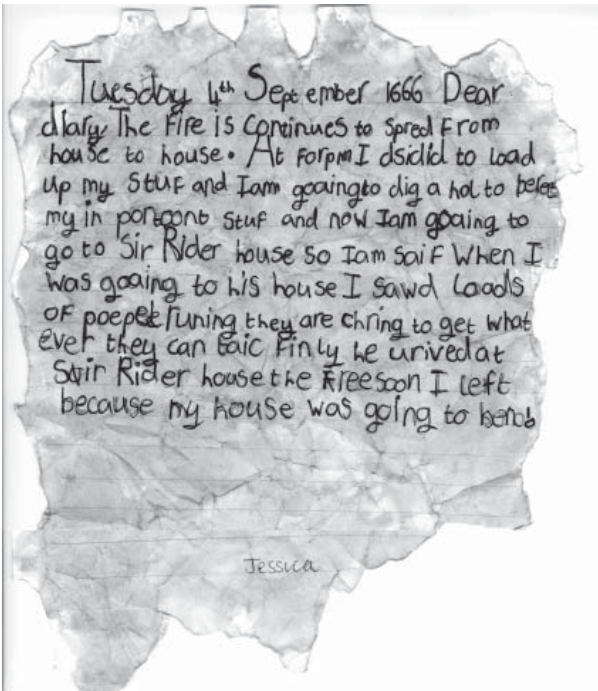 Tuesday 4th September 1666 Dear
diary The Fire is continues to spred From
house to house. At Forpm I dsidid to load
up my stuf and Iam goaingto dig a hol to
my in portont stuf and now Iam goaing to
go to Sir Rider house so Iam saif When I
was goaing to his house I sawd Loads
OF poepel runing they are chring to get what
ever they can taic Finly he urived at
Sir Rider house the Freesoon I left
because my house was going to
Jessica